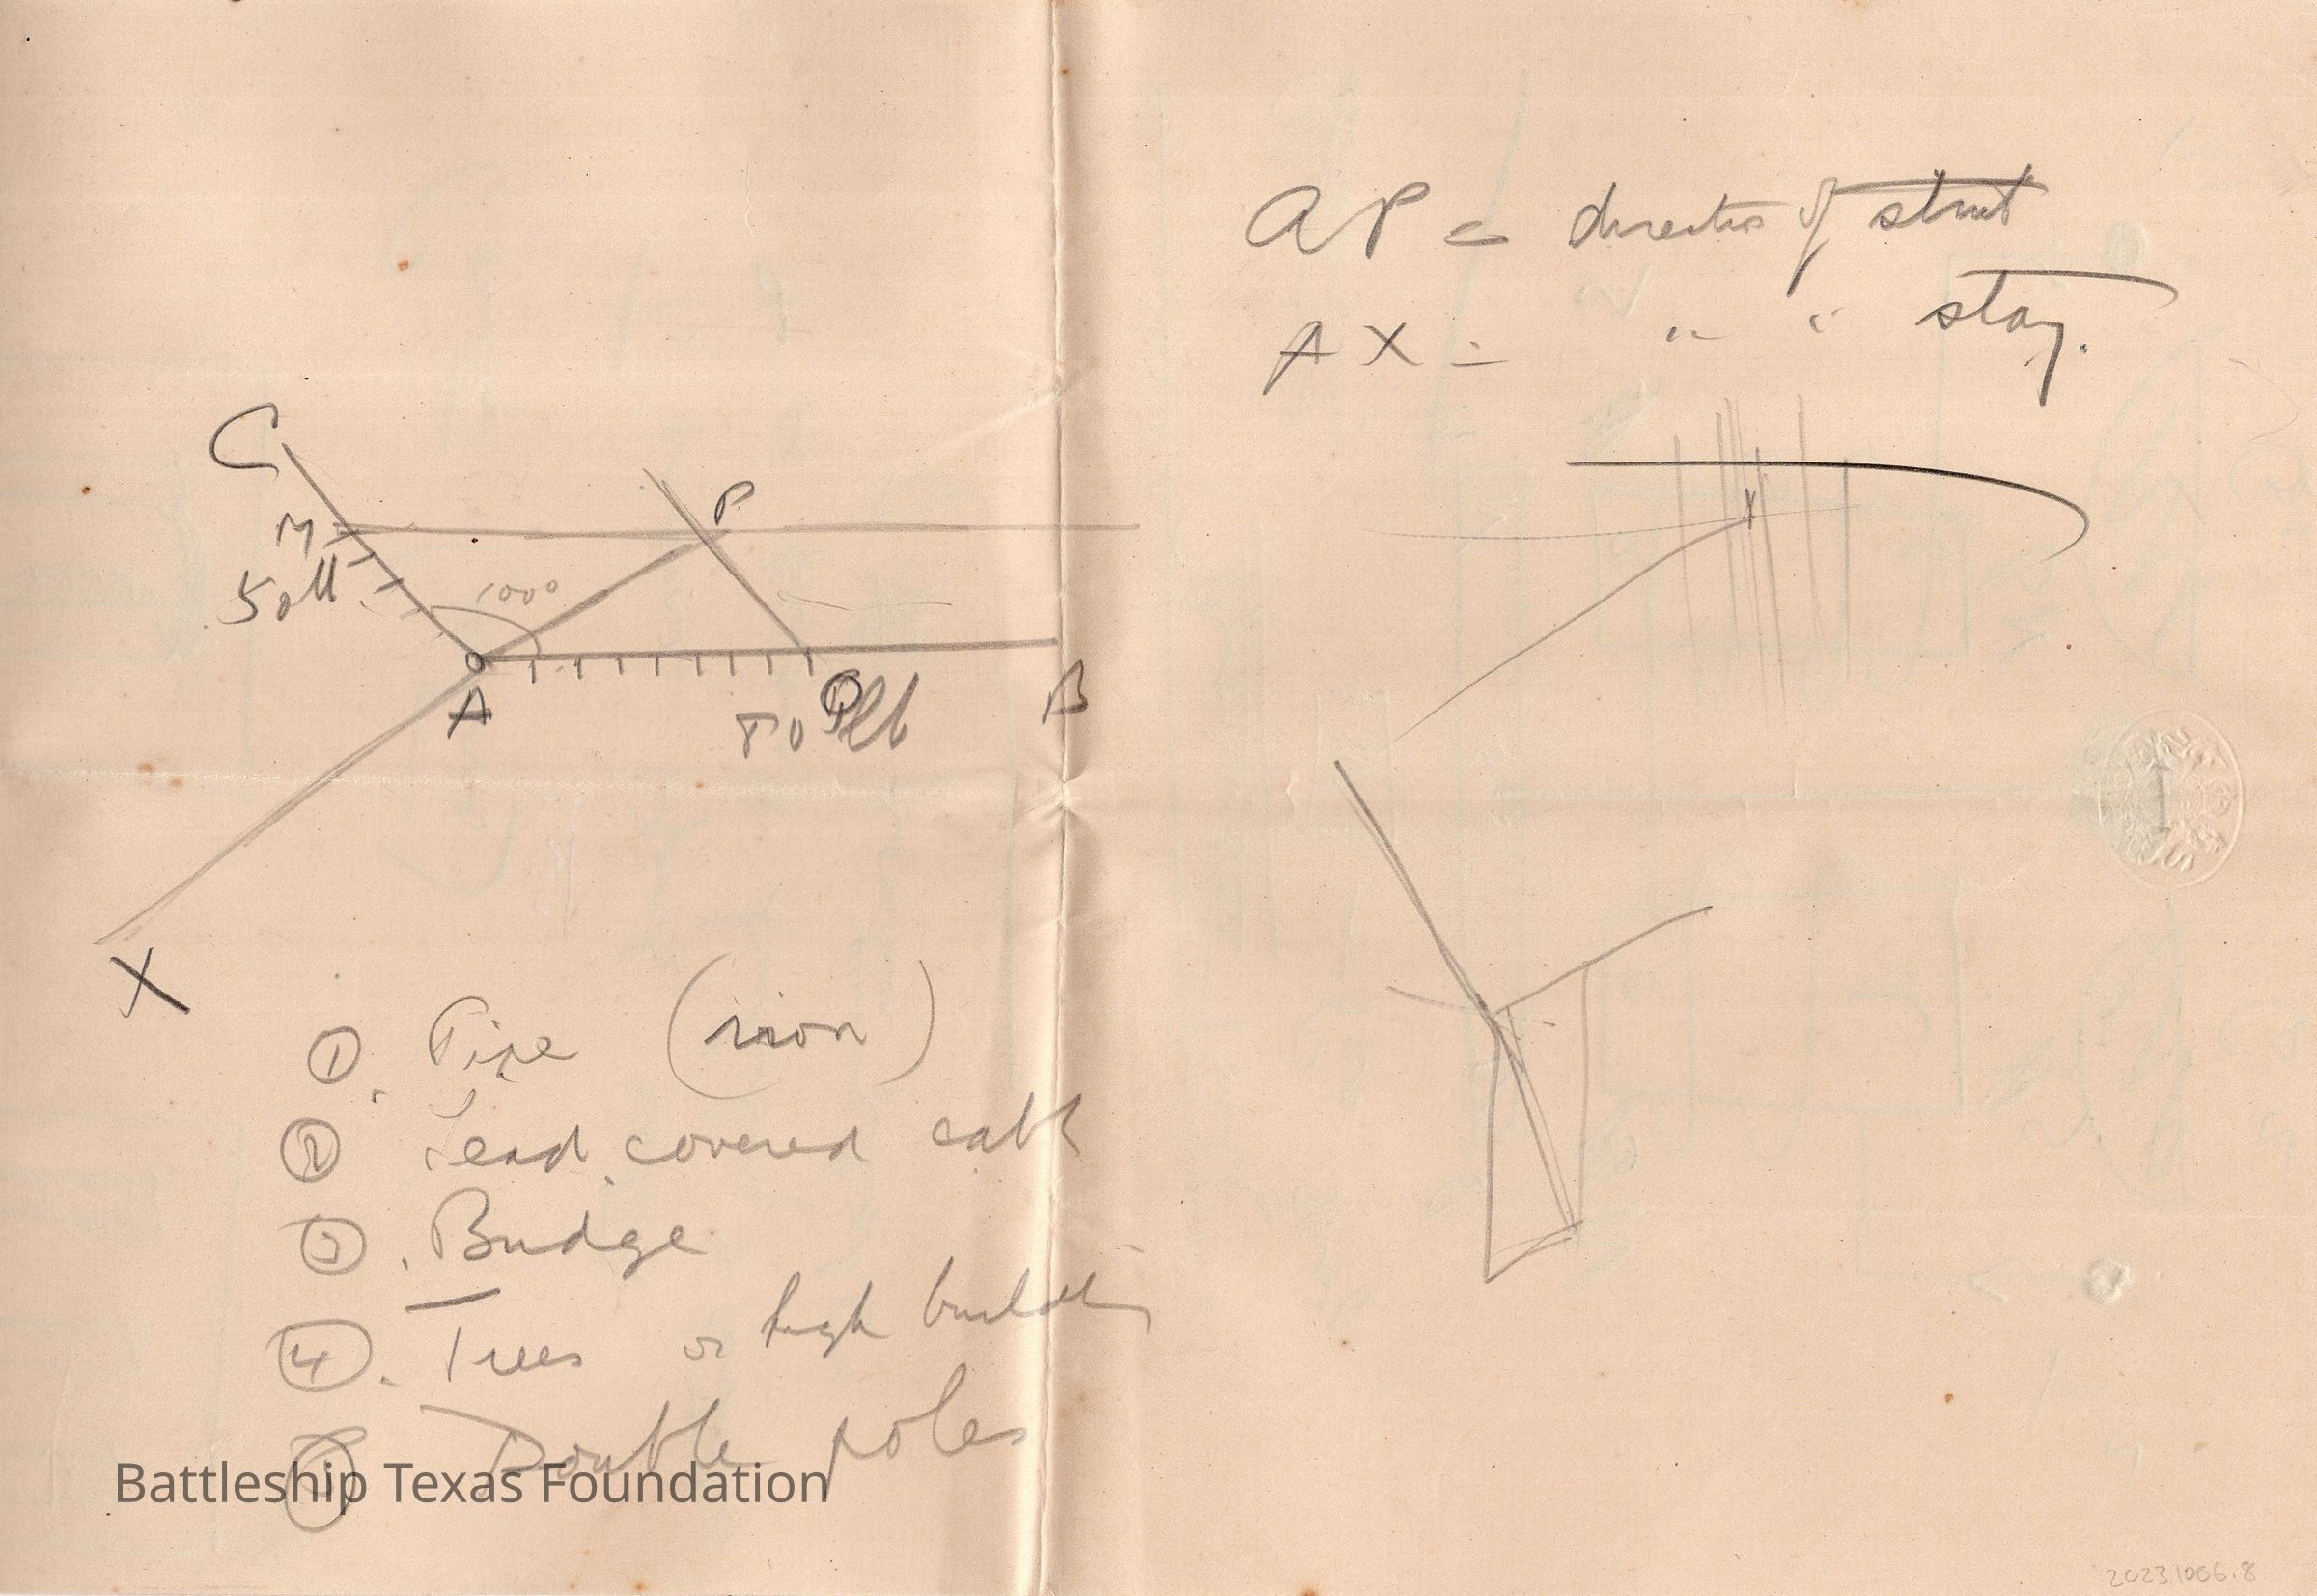 AP = direction of strut
AX = " " stay.
C
M
P
50 lb
1000
A
Q
80 lb
B
X
① Pipe (iron)
② Lead covered cable
③ Bridge
④ Trees or high building
⑤ Double poles
Battleship Texas Foundation
2023.1006.8